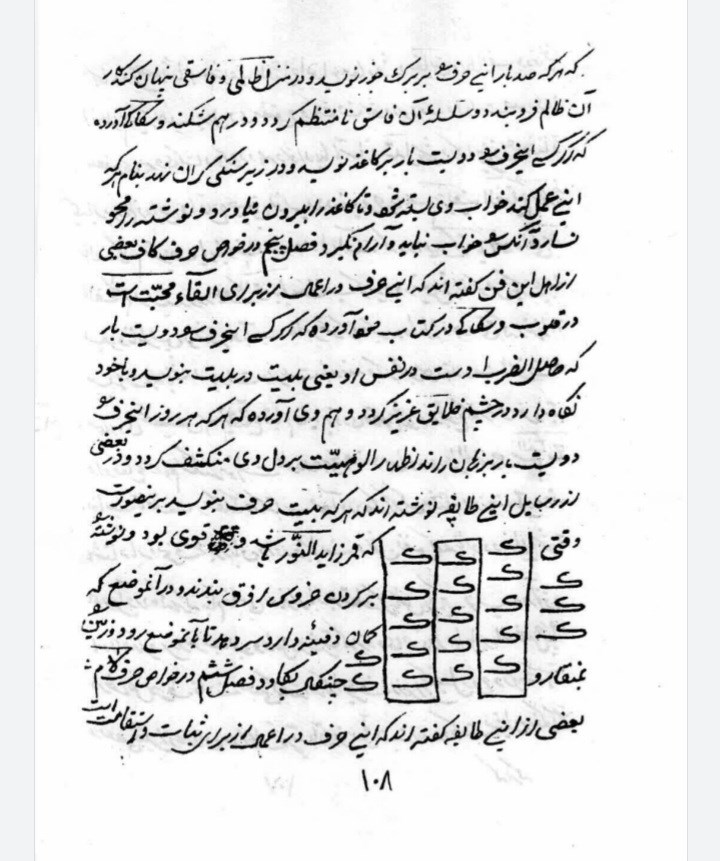 که هرکه صد بار این حرف را بر برگ خود نویسد و در منزل ظالمی و فاسقی پنهان کند کار
آن ظالم فرو بندد و سلسلهٔ آن فاسق نامنتظم گردد و درهم شکند و سکاکی آورده
که اگر کسی اینحرف را دویست بار بر کاغذ نویسد و در زیر سنگی گران نهد بنام هرکه
این عمل کند خواب وی بسته شود تا کاغذ را بیرون نیاورد و نوشته را محو
نسازد آنکس را خواب نیاید و آرام نگیرد فصل پنجم در خواص حرف کاف بعضی
از اهل این فن گفته اند که این حرف در اعمال از برای القآء محبّت است
در قلوب و سکاکی در کتاب خود آورده که اگر کسی اینحرف را دویست بار
که حاصل الضرب اوست در نفس او یعنی بیست در بیست بنویسد و با خود
نگاه دارد در چشم خلایق عزیز گردد و هم وی آورده که هرکه هر روز اینحرف را
دویست بار بزبان راند اظهار الوهیّت بر دل وی منکشف گردد و در بعضی
از رسایل این طایفه نوشته اند که هرکه بیست حرف بنویسد برینصورت
وقتی ک ک ک که قمر زاید النّور باشد و قوی بود و نوشته را
ک ک ک ک بر گردن خروس ازرق بندند و در آنموضع که
ک ک ک ک گمان دفینه دارد سر دهد تا بآنموضع رود و زمین را
ک ک ک ک
بمنقار و ک ک ک ک چنگال بکاود فصل ششم در خواص حرف لام
بعضی از این طایفه گفته اند که این حرف در اعمال از برای ثبات و استقامت است
۱۰۸